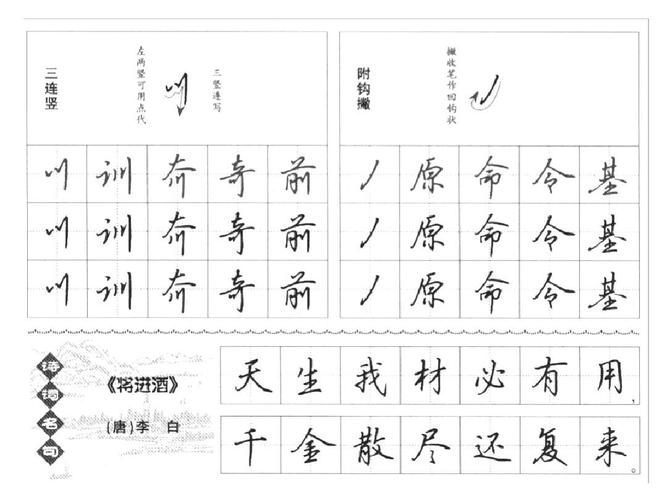 三连竖
左两竖可用点代
三竖连写
附钩撇
撇收笔作回钩状
川 训 奇 前
丿 原 命 令 基
川 训 奇 前
丿 原 命 令 基
川 训 奇 前
丿 原 命 令 基
诗词名句
《将进酒》
(唐)李 白
天生我材必有用,
千金散尽还复来。